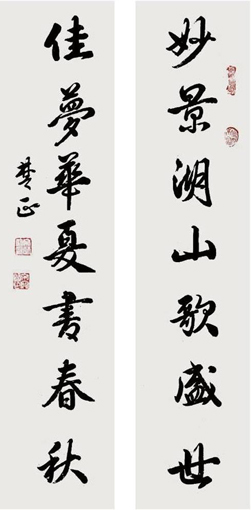 妙景湖山歌盛世
佳夢華夏書春秋
楚正